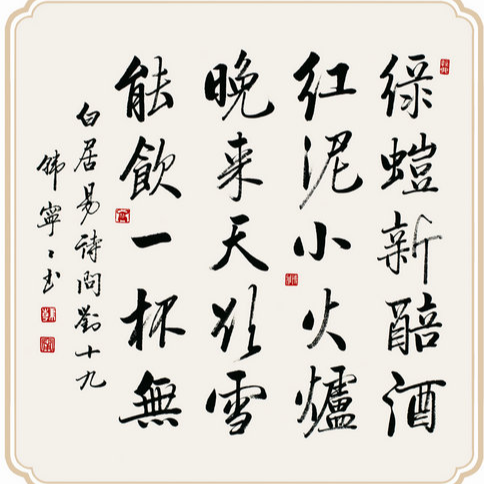 綠螘新醅酒
紅泥小火爐
晚来天欲雪
能飲一杯無
白居易詩問劉十九
韓寧〻書